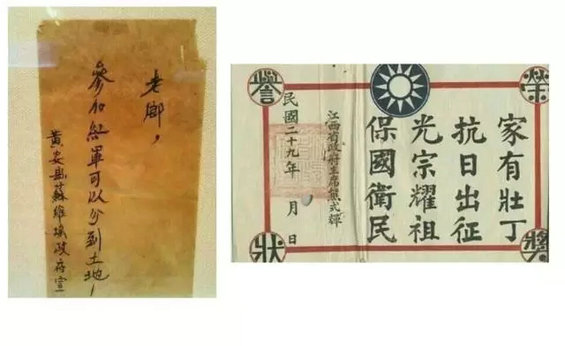 老鄉，
參加紅軍可以分到土地！
黃安縣蘇維埃政府宣
榮譽獎狀
家有壯丁
抗日出征
光宗耀祖
保國衛民
江西省政府主席熊式輝
民國二十九年 月 日